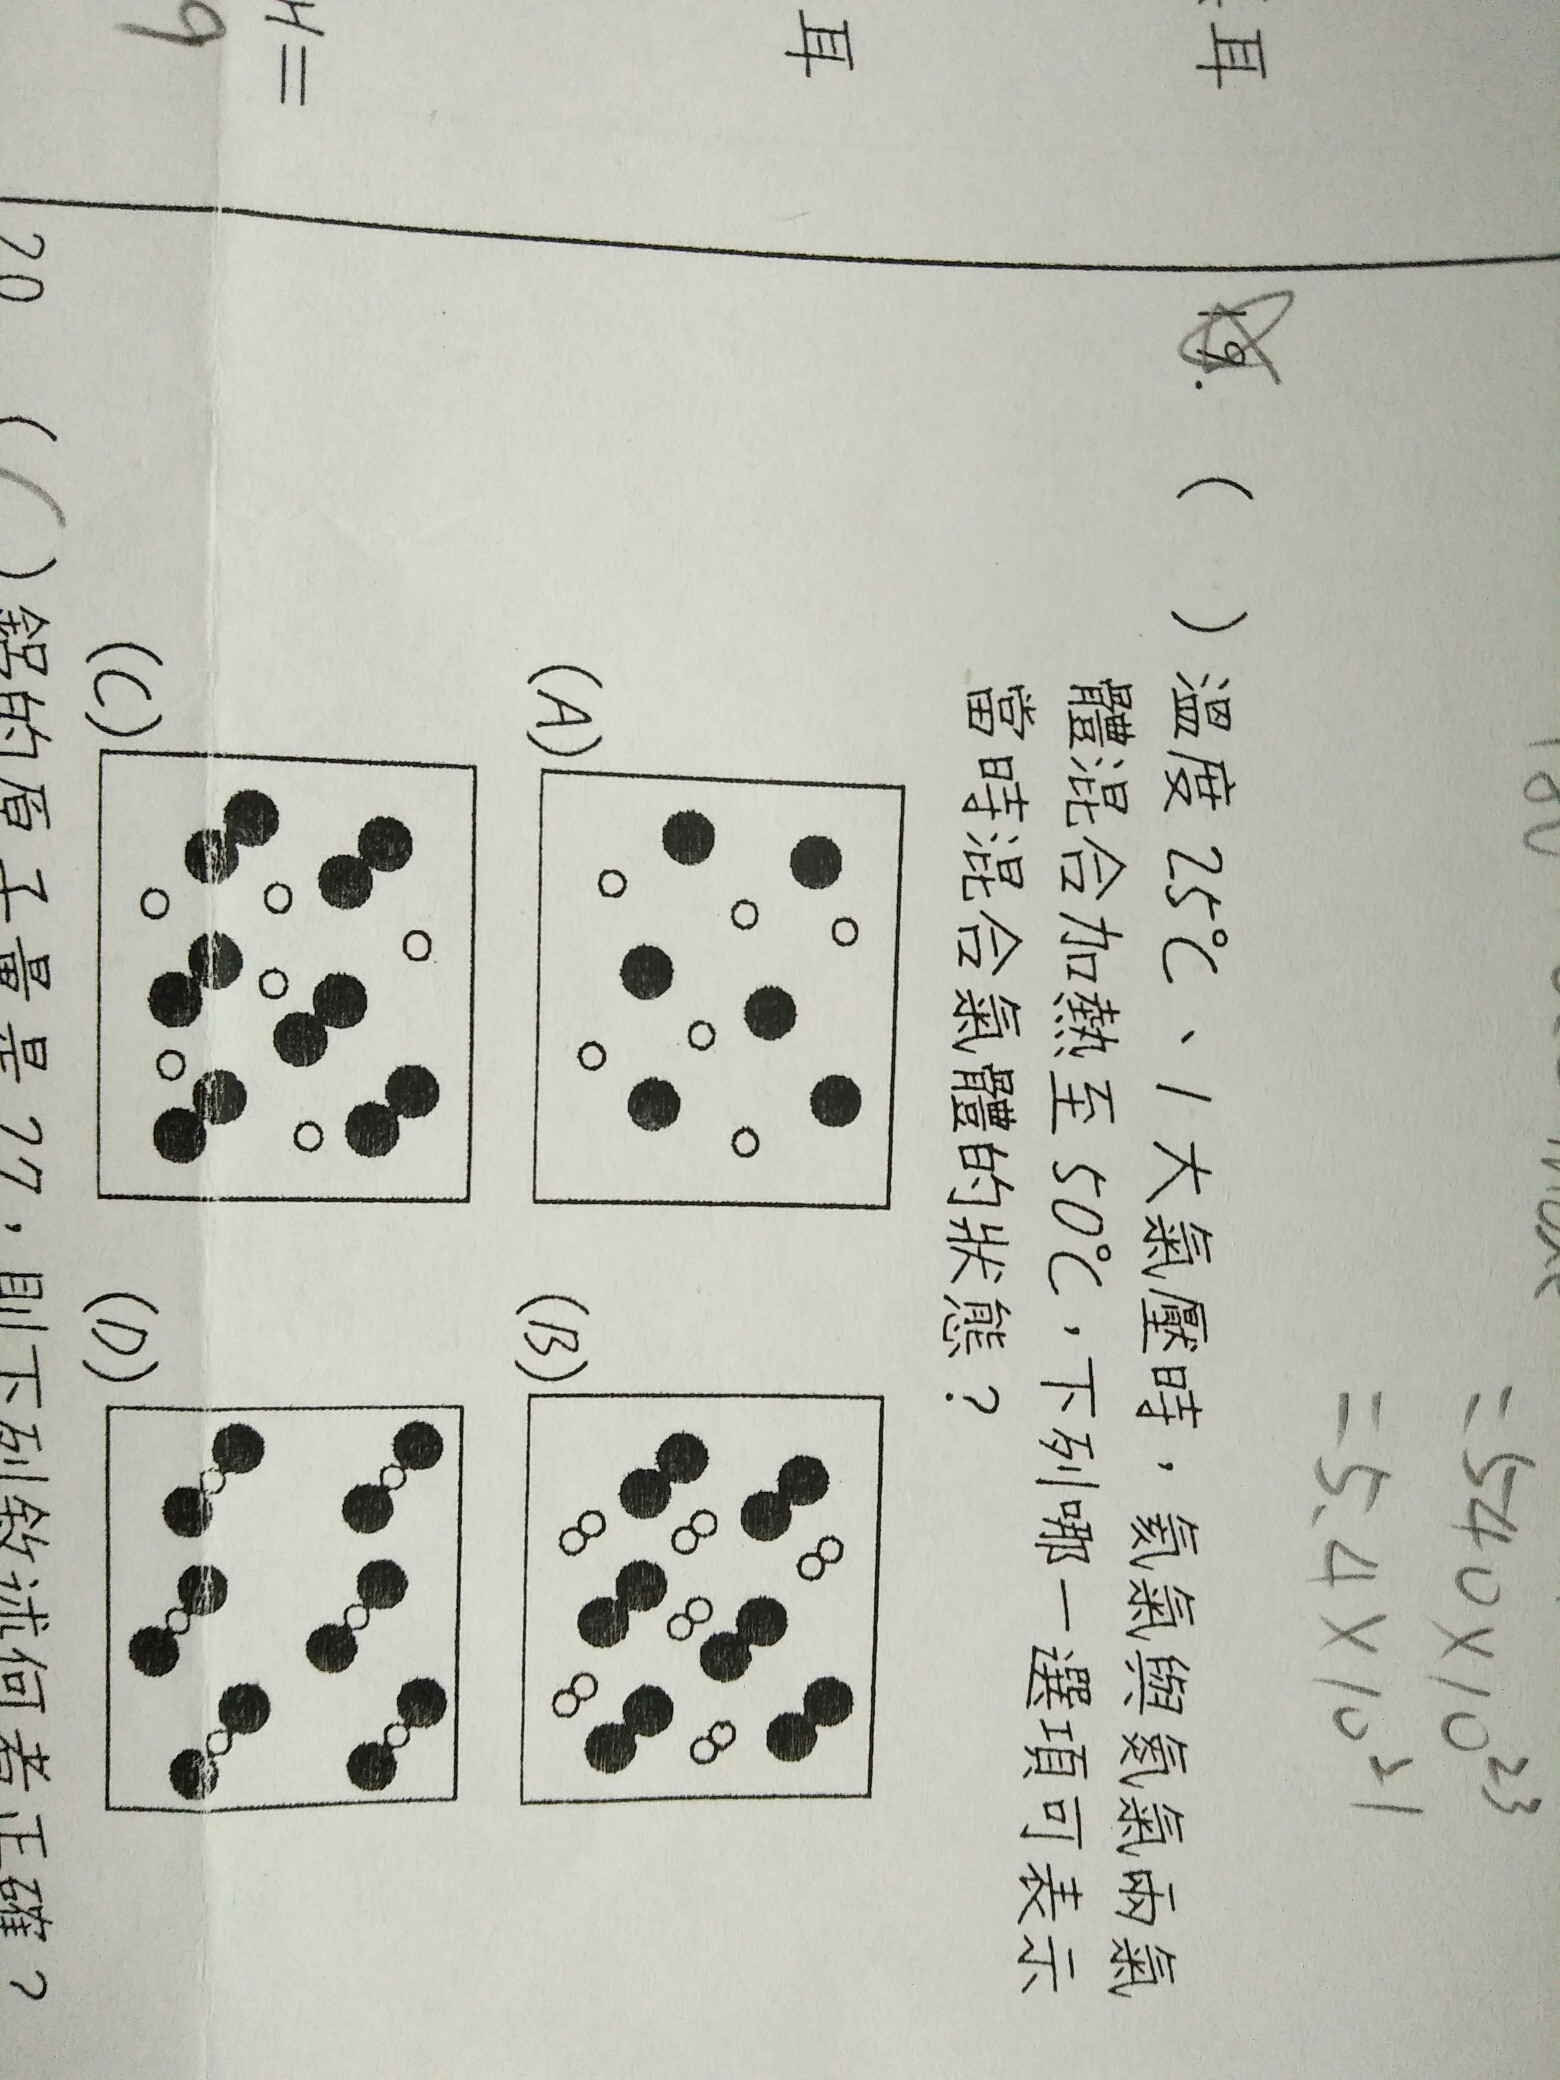 耳
耳
H=
9
=540×10²³
=5.4×10²¹
19. ( )溫度25℃、1大氣壓時，氦氣與氮氣兩氣
體混合加熱至50℃，下列哪一選項可表示
當時混合氣體的狀態？
(A)
(B)
(C)
(D)
20 ( )鋁的原子量是27，則下列敘述何者正確？